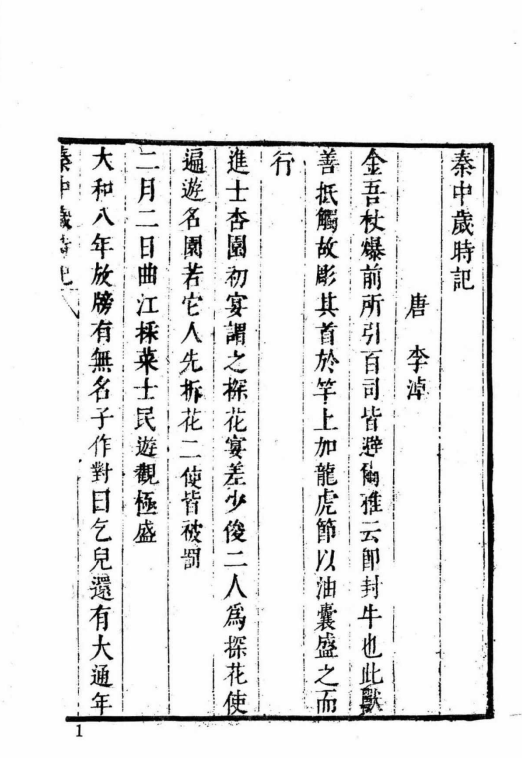 秦中歲時記
唐 李淖
金吾杖爆前所引百司皆避爾雅云卽封牛也此獸
善抵觸故彫其首於竿上加龍虎節以油囊盛之而
行
進士杏園初宴謂之探花宴差少俊二人爲探花使
遍遊名園若它人先折花二使皆被罰
二月二日曲江採菜士民遊觀極盛
大和八年放牓有無名子作對曰乞兒還有大通年
秦中歲時記
1